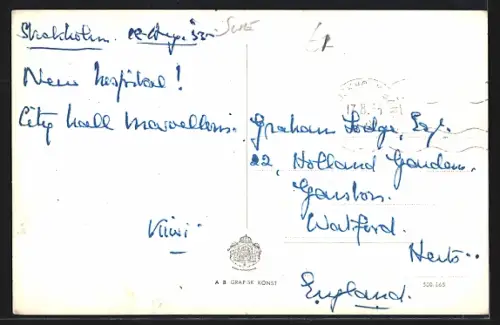 Stockholm. 12. Aug. 53.
New hospital!
City hall marvellous.
Graham Lodge, Esq.
22, Holland Gardens,
Garston,
Watford.
Herts.
England.
A. B. GRAFISK KONST